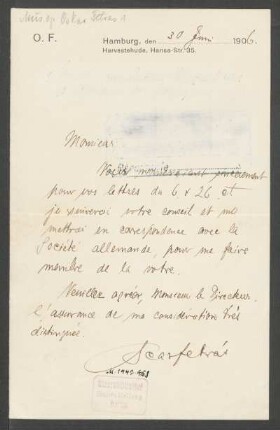 O. F.
Hamburg, den 30 Juni 1906
Harvestehude, Hansa-Str. 35.
Monsieur
pour vos lettres du 6 & 26 et
je suiverai votre conseil et me
mettrai en correspondence avec la
Société allemande, pour me faire
membre de la votre.
Veuillez agréer, Monsieur le Directeur
l'assurance de ma consideration très
distinguée.